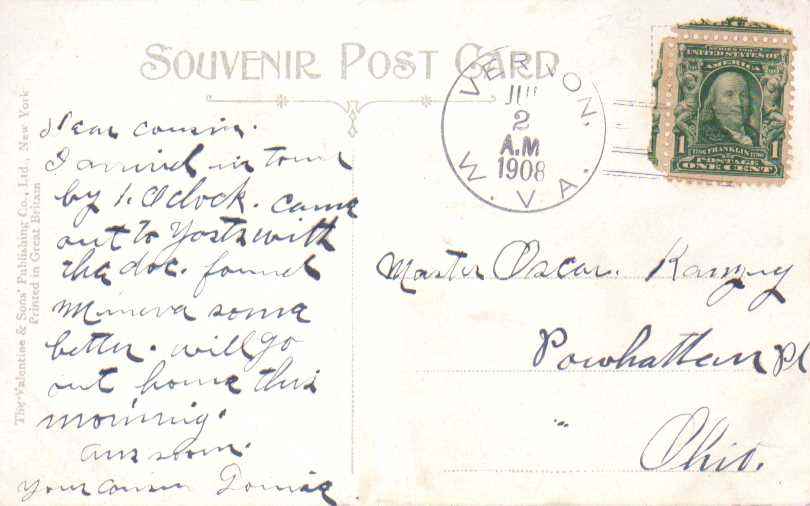 SOUVENIR POST CARD
VERNON.
JU
2
A.M
1908
W. VA.
SERIES 1902
UNITED STATES OF
AMERICA
FRANKLIN
1 POSTAGE 1
ONE CENT
The Valentine & Sons' Publishing Co., Ltd., New York
Printed in Great Britain
Dear cousin.
I arrived in town
by 1. Oclock. came
out to Yosts with
the doc. found
Minerva some
better. will go
out home this
morning.
ans soon.
Your cousin
Master Oscar. Ramsey
Powhattan Pt
" Ohio.